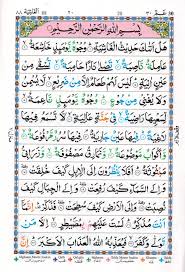 بِسْمِ اللّٰهِ الرَّحْمٰنِ الرَّحِيْمِ
هَلْ اَتٰىكَ حَدِيْثُ الْغَاشِيَةِ وُجُوْهٌ يَّوْمَئِذٍ خَاشِعَةٌ
عَامِلَةٌ نَّاصِبَةٌ تَصْلٰى نَارًا حَامِيَةً تُسْقٰى مِنْ عَيْنٍ
اٰنِيَةٍ لَيْسَ لَهُمْ طَعَامٌ اِلَّا مِنْ ضَرِيْعٍ لَّا
يُسْمِنُ وَلَا يُغْنِيْ مِنْ جُوْعٍ وُجُوْهٌ يَّوْمَئِذٍ نَّاعِمَةٌ
لِّسَعْيِهَا رَاضِيَةٌ فِيْ جَنَّةٍ عَالِيَةٍ لَّا تَسْمَعُ
فِيْهَا لَاغِيَةً فِيْهَا عَيْنٌ جَارِيَةٌ فِيْهَا سُرُرٌ مَّرْفُوْعَةٌ
وَّاَكْوَابٌ مَّوْضُوْعَةٌ وَّنَمَارِقُ مَصْفُوْفَةٌ وَّزَرَابِيُّ
مَبْثُوْثَةٌ اَفَلَا يَنْظُرُوْنَ اِلَى الْاِبِلِ كَيْفَ خُلِقَتْ
وَاِلَى السَّمَآءِ كَيْفَ رُفِعَتْ وَاِلَى الْجِبَالِ كَيْفَ
نُصِبَتْ وَاِلَى الْاَرْضِ كَيْفَ سُطِحَتْ فَذَكِّرْ اِنَّمَآ
اَنْتَ مُذَكِّرٌ لَسْتَ عَلَيْهِمْ بِمُصَيْطِرٍ اِلَّا مَنْ
تَوَلّٰى وَكَفَرَ فَيُعَذِّبُهُ اللّٰهُ الْعَذَابَ الْاَكْبَرَ اِنَّ